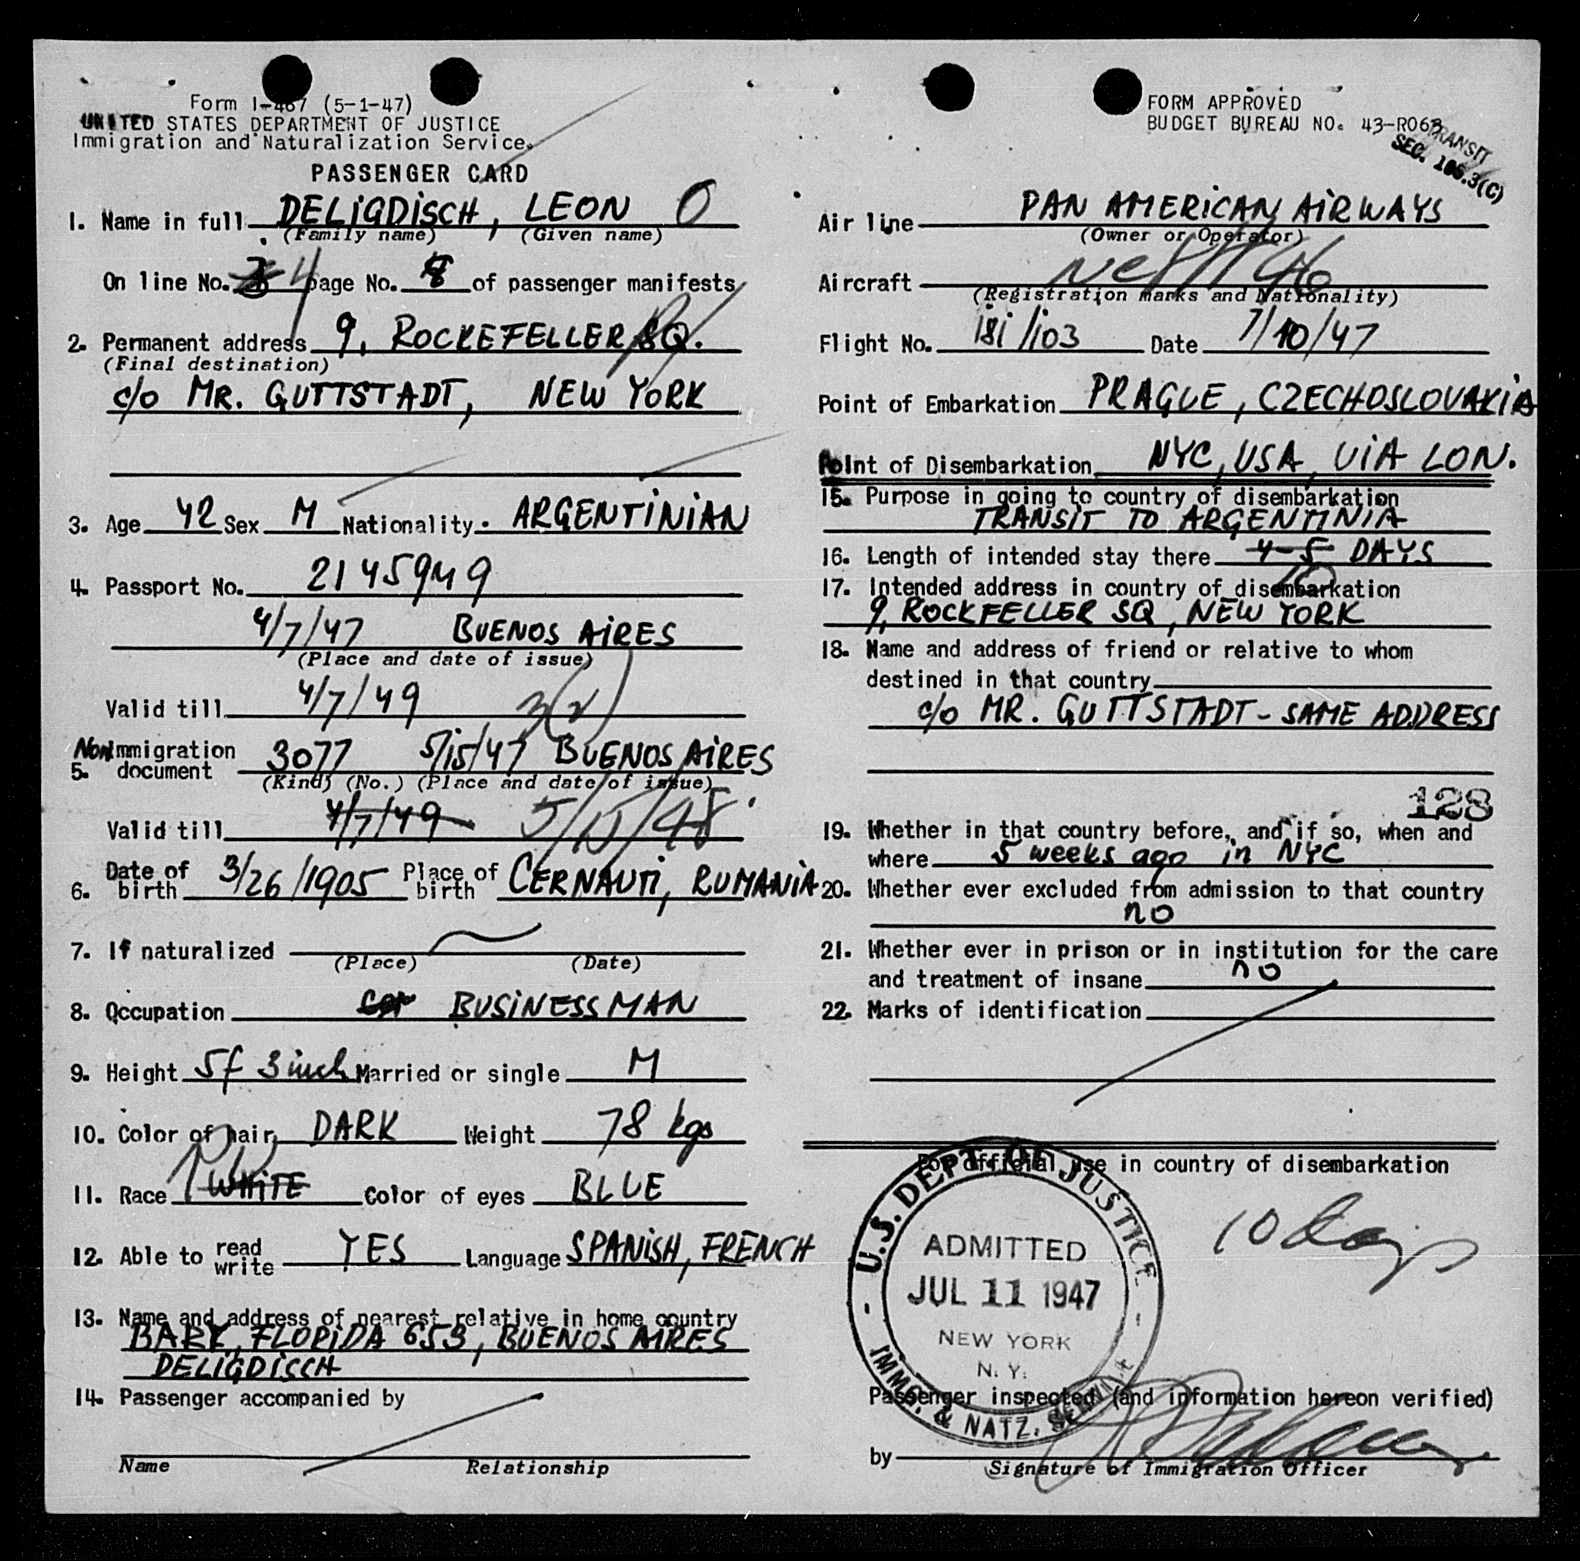 Form I-467 (5-1-47)
UNITED STATES DEPARTMENT OF JUSTICE
Immigration and Naturalization Service.
PASSENGER CARD
1. Name in full DELIGDISCH, LEON
(Family name) (Given name)
On line No. 4 page No. of passenger manifests
2. Permanent address 9, ROCKEFELLER SQ.
(Final destination)
c/o MR. GUTTSTADT, NEW YORK
3. Age 42 Sex M Nationality. ARGENTINIAN
4. Passport No. 2145949
4/7/47 BUENOS AIRES
(Place and date of issue)
Valid till 4/7/49
3(2)
Non Immigration
5. document 3077 5/15/47 BUENOS AIRES
(Kind) (No.) (Place and date of issue)
Valid till 4/7/49 5/15/48
6. Date of birth 3/26/1905 Place of birth CERNAUTI, RUMANIA
7. If naturalized
(Place) (Date)
8. Occupation BUSINESSMAN
9. Height 5f 3 inch Married or single M
10. Color of hair DARK Weight 78 kgs
11. Race WHITE Color of eyes BLUE
12. Able to read write YES Language SPANISH, FRENCH
13. Name and address of nearest relative in home country
BARY, FLORIDA 653, BUENOS AIRES
DELIGDISCH
14. Passenger accompanied by
Name Relationship
FORM APPROVED
BUDGET BUREAU NO. 43-R063
TRANSIT
SEC. 106.3(C)
Air line PAN AMERICAN AIRWAYS
(Owner or Operator)
Aircraft
(Registration marks and Nationality)
Flight No. 181/103 Date 7/10/47
Point of Embarkation PRAGUE, CZECHOSLOVAKIA
Point of Disembarkation NYC, USA, VIA LON.
15. Purpose in going to country of disembarkation
TRANSIT TO ARGENTINIA
16. Length of intended stay there 4-5 DAYS
10
17. Intended address in country of disembarkation
9, ROCKFELLER SQ, NEW YORK
18. Name and address of friend or relative to whom
destined in that country
c/o MR. GUTTSTADT - SAME ADDRESS
128
19. Whether in that country before, and if so, when and
where 5 weeks ago in NYC
20. Whether ever excluded from admission to that country
no
21. Whether ever in prison or in institution for the care
and treatment of insane no
22. Marks of identification
For official use in country of disembarkation
10 days
U.S. DEPT. OF JUSTICE
ADMITTED
JUL 11 1947
NEW YORK
N.Y.
IMMG. & NATZ. SERVICE
Passenger inspected (and information hereon verified)
by
Signature of Immigration Officer